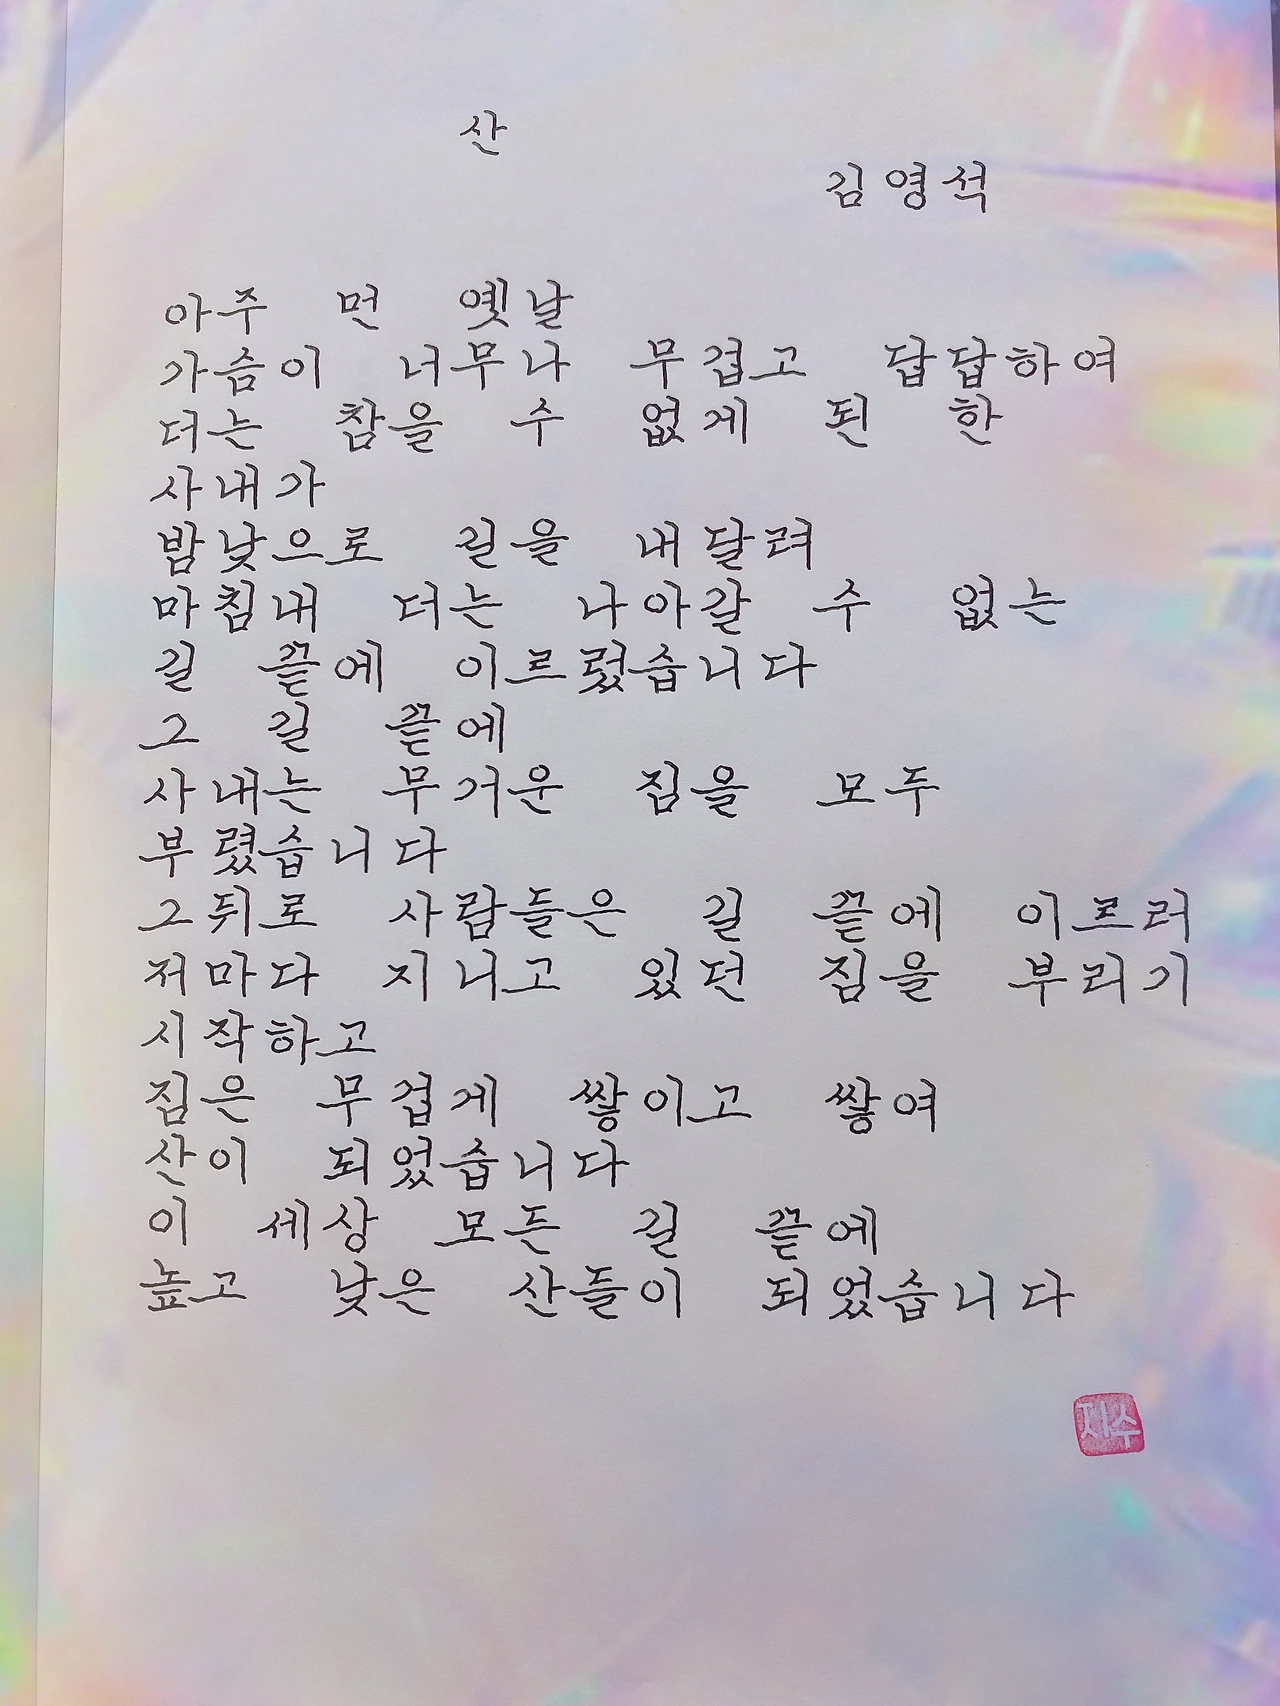 산
김영석
아주 먼 옛날
가슴이 너무나 무겁고 답답하여
더는 참을 수 없게 된 한
사내가
밤낮으로 길을 내달려
마침내 더는 나아갈 수 없는
길 끝에 이르렀습니다
그 길 끝에
사내는 무거운 짐을 모두
부렸습니다
그 뒤로 사람들은 길 끝에 이르러
저마다 지니고 있던 짐을 부리기
시작하고
짐은 무겁게 쌓이고 쌓여
산이 되었습니다
이 세상 모든 길 끝에
높고 낮은 산들이 되었습니다
지수